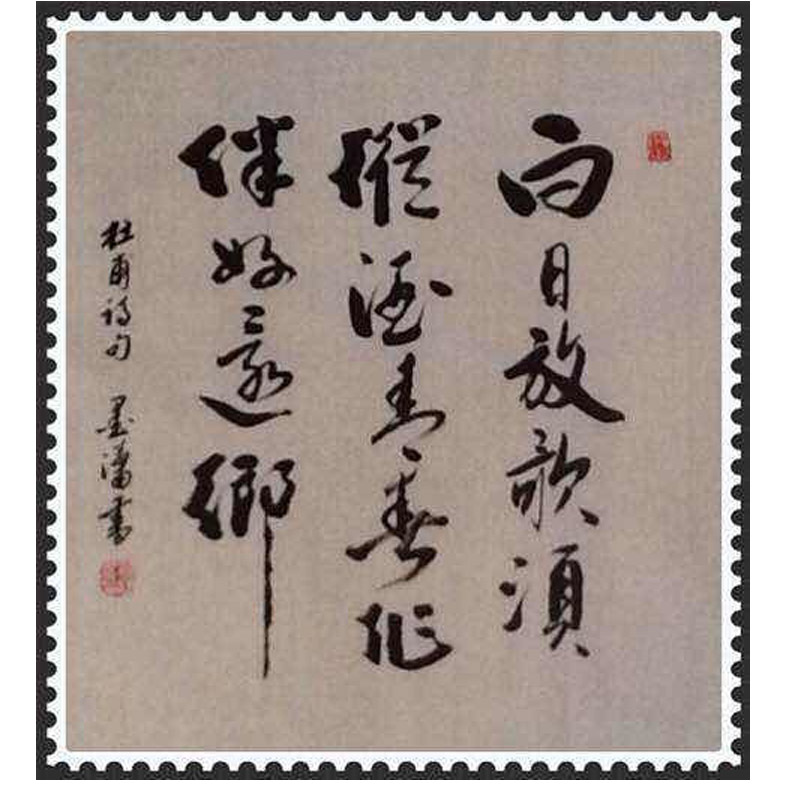 白日放歌須
縱酒青春作
伴好還鄉
杜甫詩句 墨潘書